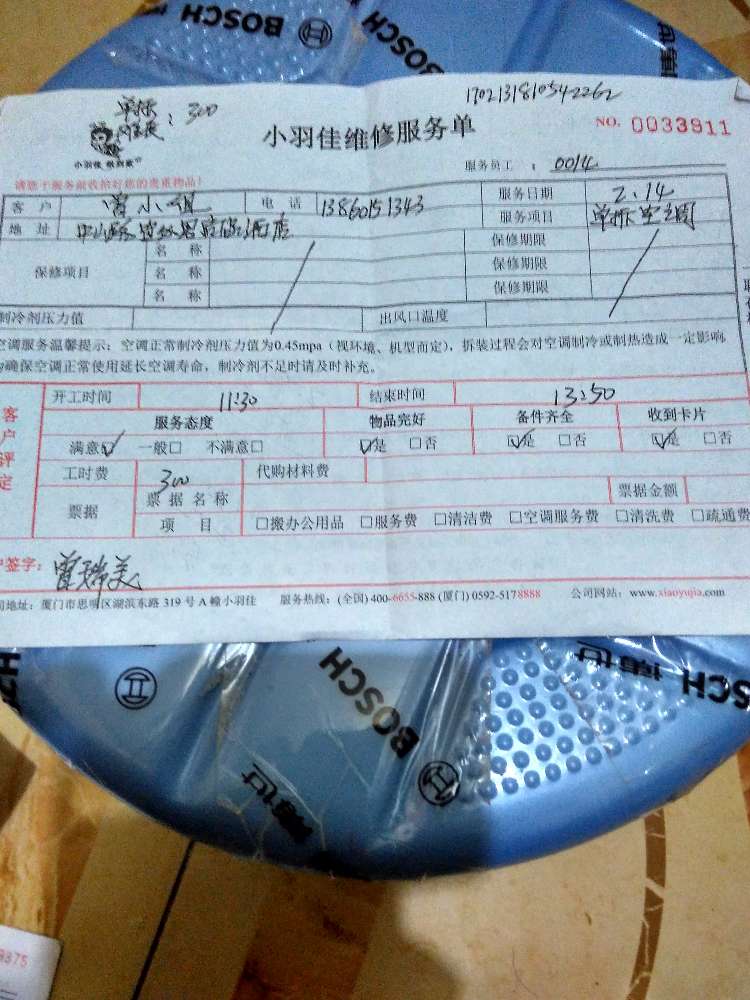 BOSCH 博世
BOSCH
单拆 : 300
1702131810542262
小羽佳维修服务单
NO. 0033911
小羽佳 做到家
服务员工 : 0014
请您于服务前收拾好您的贵重物品!
客 户 曾小姐 电 话 13860151343 服务日期 2.14
地 址 服务项目 单拆空调
保修项目 名 称 保修期限
名 称 保修期限
名 称 保修期限
制冷剂压力值 出风口温度
空调服务温馨提示：空调正常制冷剂压力值为0.45mpa（视环境、机型而定），拆装过程会对空调制冷或制热造成一定影响
为确保空调正常使用延长空调寿命，制冷剂不足时请及时补充。
客户评定
开工时间 11:30 结束时间 13:50
服务态度 物品完好 备件齐全 收到卡片
满意☑ 一般□ 不满意□ ☑是 □否 ☑是 □否 ☑是 □否
工时费 300 代购材料费
票据 票 据 名 称 票据金额
项 目 □搬办公用品 □服务费 □清洁费 □空调服务费 □清洗费 □疏通费
户签字： 曾瑞美
司地址：厦门市思明区湖滨东路 319 号 A 幢小羽佳 服务热线：(全国) 400-6655-888 (厦门) 0592-5178888 公司网站：www.xiaoyujia.com
BOSCH
BOSCH 博世
博世
9375